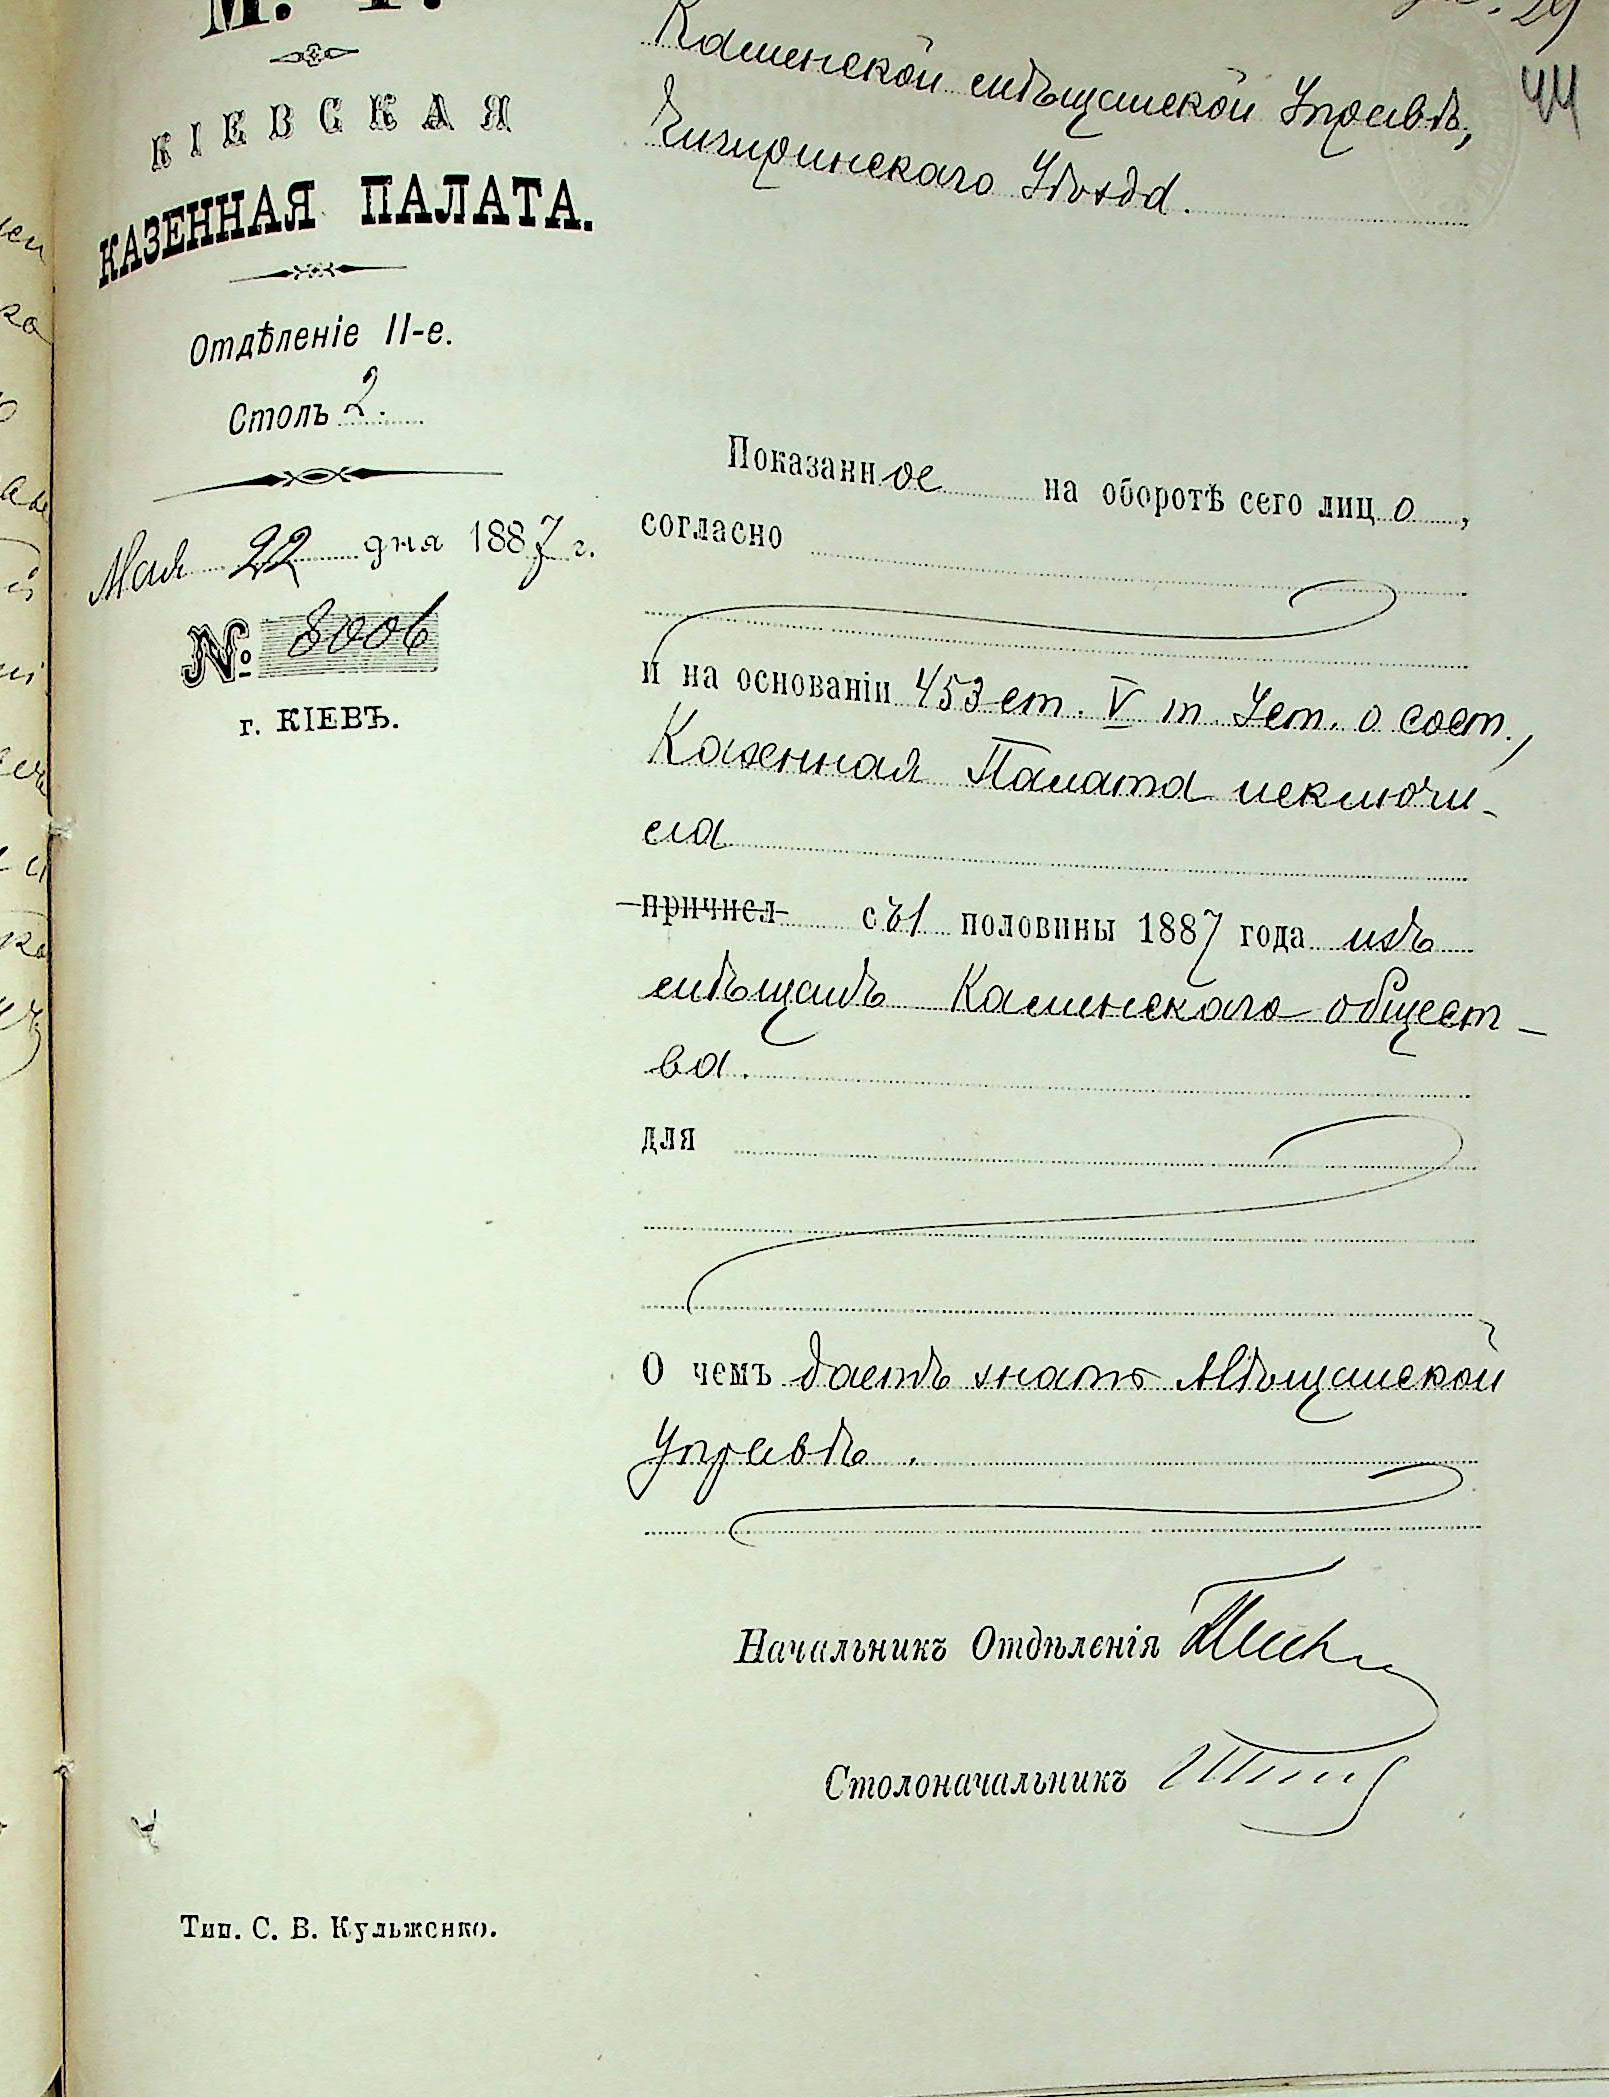 М. Ф.
КІЕВСКАЯ
КАЗЕННАЯ ПАЛАТА.
Отдѣленіе II-е.
Столъ 2.
Мая 22 дня 1887 г.
№ 8006
г. КІЕВЪ.
29
44
Каменской мѣщанской Управѣ,
Чигиринскаго Уѣзда.
Показанное на оборотѣ сего лицо,
согласно
и на основаніи 453 ст. V т. Уст. о сост.,
Казенная Палата исключи-
ла
причисл съ 1 половины 1887 года изъ
мѣщанъ Каменскаго общест-
ва.
для
О чемъ даетъ знать Мѣщанской
Управѣ.
Начальникъ Отдѣленія
Столоначальникъ
Тип. С. В. Кульженко.